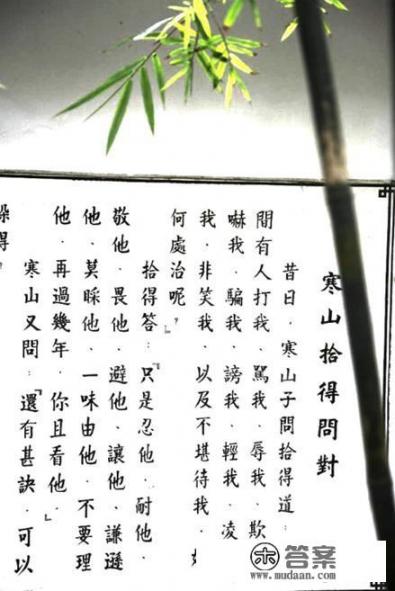 寒山拾得問對
昔日．寒山子問拾得道：
間有人打我．罵我．辱我．欺
嚇我．騙我．謗我．輕我．凌
我．非笑我．以及不堪待我．
何處治呢？』
拾得答：『只是忍他．耐他．
敬他．畏他．避他．讓他．謙遜
他．莫睬他．一味由他．不要理
他．再過幾年．你且看他．』
寒山又問：『還有甚訣．可以
躲得
答案
www.mudaan.com